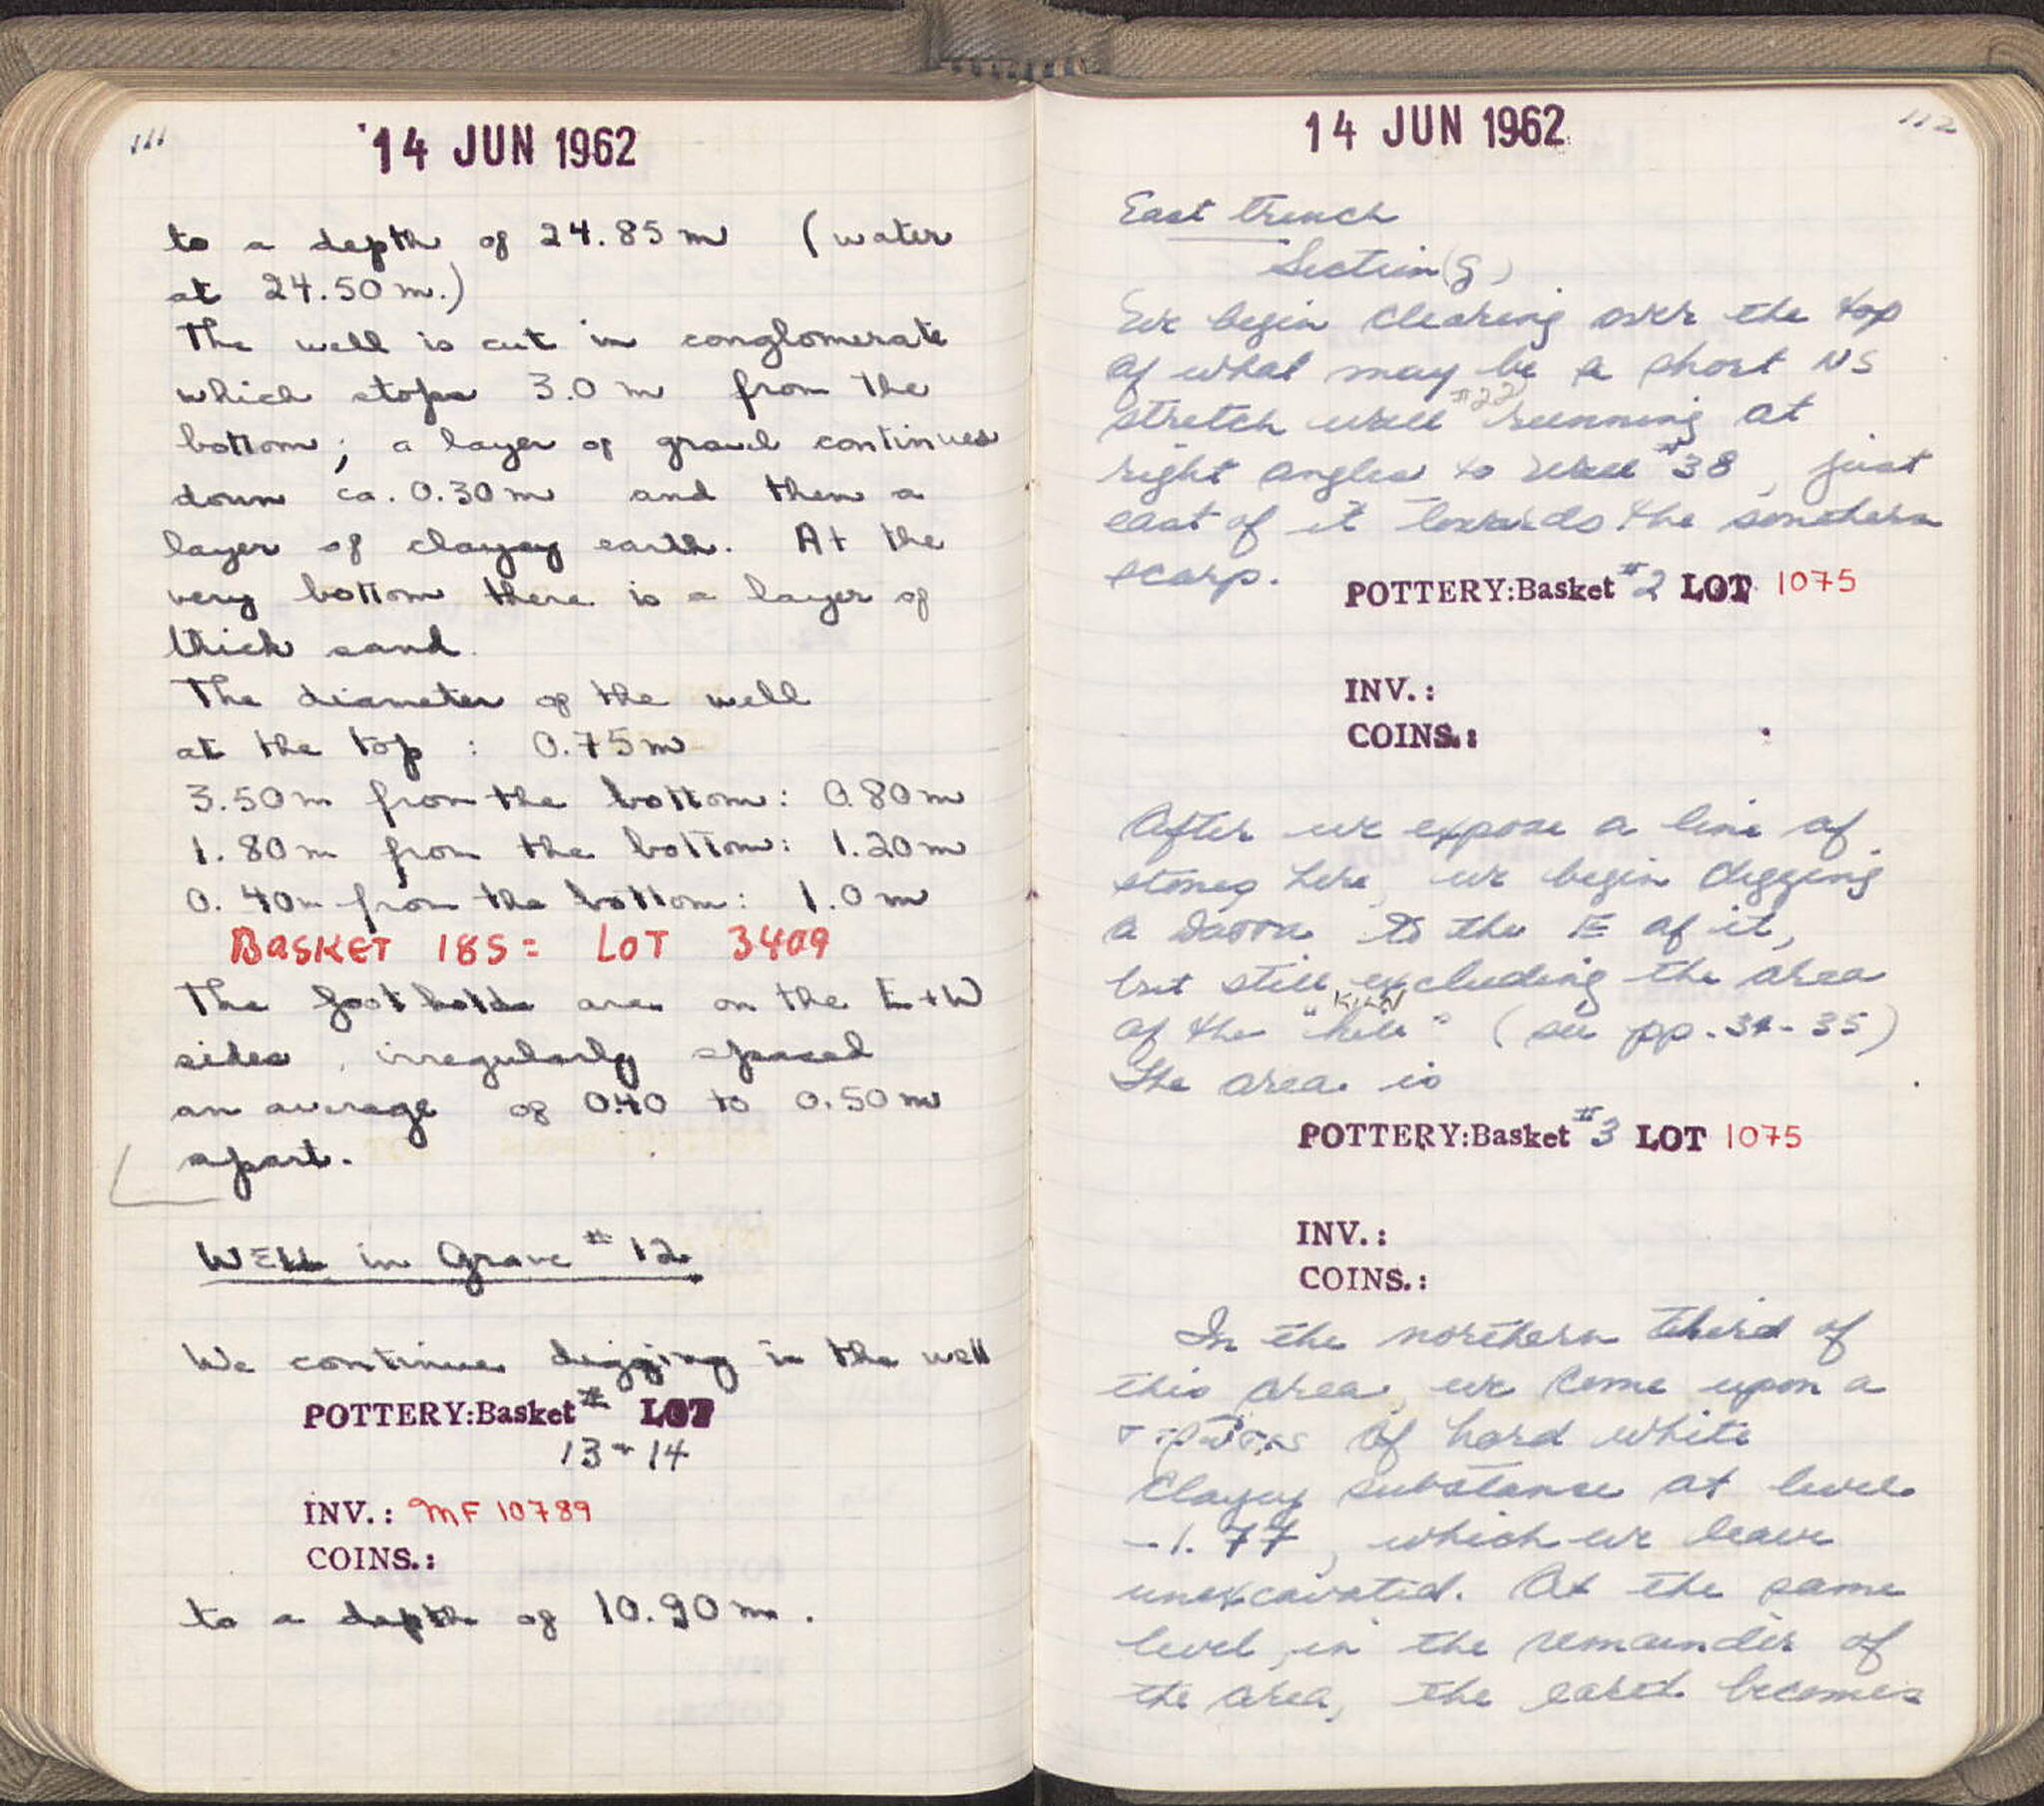 111
14 JUN 1962
to a depth of 24.85 m (water
at 24.50 m.)
The well is cut in conglomerate
which stops 3.0 m from the
bottom; a layer of gravel continues
down ca. 0.30 m and then a
layer of clayey earth. At the
very bottom there is a layer of
thick sand.
The diameter of the well
at the top : 0.75 m
3.50 m from the bottom: 0.80 m
1.80 m from the bottom: 1.20 m
0.40 m from the bottom: 1.0 m
BASKET 185 = LOT 3409
The footholds are on the E + W
sides, irregularly spaced
an average of 0.40 to 0.50 m
apart.
WELL in Grave #12
We continue digging in the well
POTTERY:Basket # LOT
13 + 14
INV.: MF 10789
COINS.:
to a depth of 10.90 m.
112
14 JUN 1962
East trench
Section (g)
We begin clearing over the top
of what may be a short NS
stretch wall #22 running at
right angles to wall #38, just
east of it towards the southern
scarp.
POTTERY:Basket #2 LOT 1075
INV.:
COINS.:
After we expose a line of
stones here, we begin digging
a to the E of it,
but still excluding the area
KILN
of the "kiln" (see pp. 34-35)
The area is
POTTERY:Basket #3 LOT 1075
INV.:
COINS.:
In the northern third of
this area, we come upon a
of hard white
clayey substance at level
-1.77, which we leave
unexcavated. At the same
level, in the remainder of
the area, the earth becomes